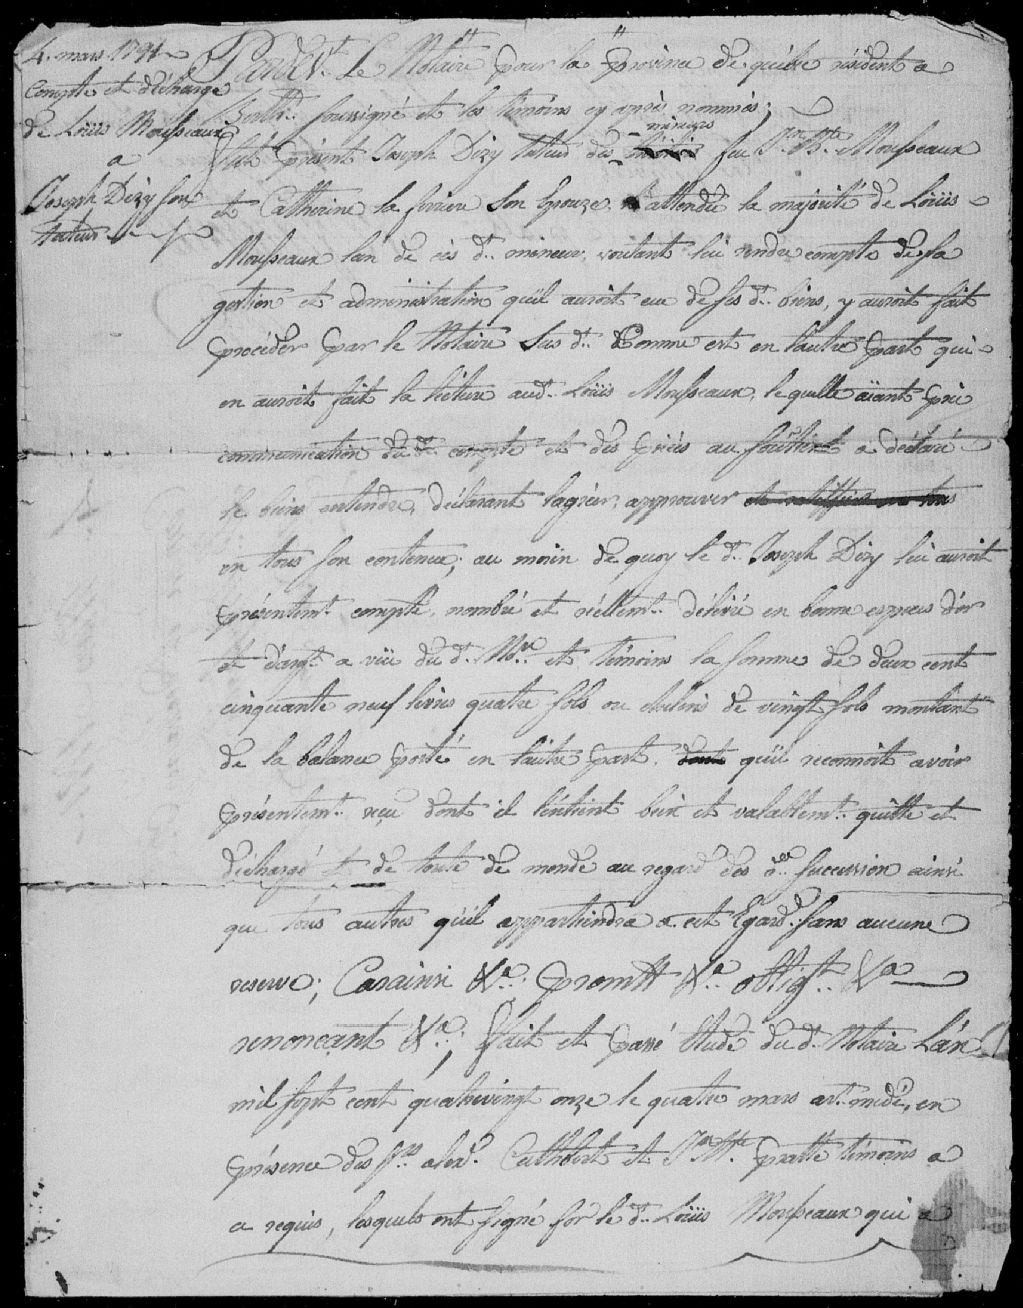 4. mars 1791
Compte et décharge
de Loüis Mousseaux
a
Joseph Dizy son
tuteur
Pardevt. Le Notaire pour la province de quebec résident a
Batn. soussigné et les témoins cy après nommés;
fut présent Joseph Dizy tuteur des mineurs feu Jn. Bte. Mousseaux
et Catherine la feriere son Epouze, attendu la majorité de Loüis
Mousseaux lun de ces dt. mineur, voulant lui rendre compte de sa
gestion et administration qüil auroit eu de ses dt. biens, y auroit fait
procéder par le Notaire sus dt. Comme est en l'autre part qui
en auroit fait la lecture audt. Loüis Mousseaux, lequelle aïant pri
communication du dt. compte et des pièces au soutient a déclaré
le bien entendre, déclarant lagréer, approuver
en tous son contenue; au moïen de quoy le dt. Joseph Dizy lui auroit
présentemt. compté, nombré et réellemt. délivré en bonne especes d'or
et d'argt. a vüe du dt. Nre. et témoins la somme de deux cent
cinquante neuf livres quatre sols ou chelins de vingt sols montant
de la balance porté en l'autre part, qüil reconnoit avoir
présentemt. reçu dont il tien bien et valablemt. quitte et
déchargé et de toute de monde au regard des dtes. succession ainsi
que tous autres qüil appartiendra a cet Egard, sans aucune
reserve; Carainsi &a. promtt &a. obligt. &a
renonçant &a.; fait et passé Etude du dt. Notaire L'an
mil sept cent quatrevingt onze le quatre mars avt. midi, en
présence des srs. alexr. Cuthbert et Jn. Bte. pratte témoins a
a requis, lesquels ont signé for le dt. Loüis Mousseaux qui a